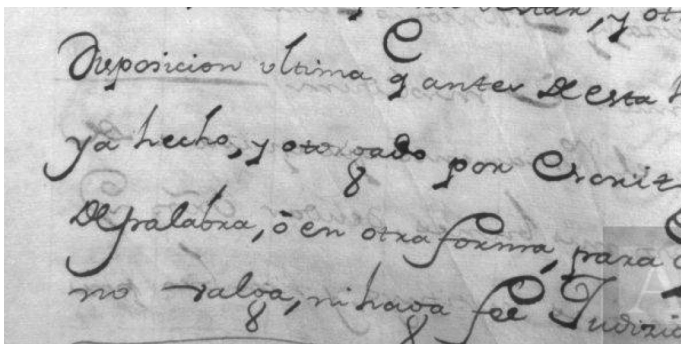 y ot
Disposicion vltima q antes de esta h
ya hecho, y otorgado por Escrit
de palabra, ò en otra forma, para q
no valga, ni haga feè Judizia